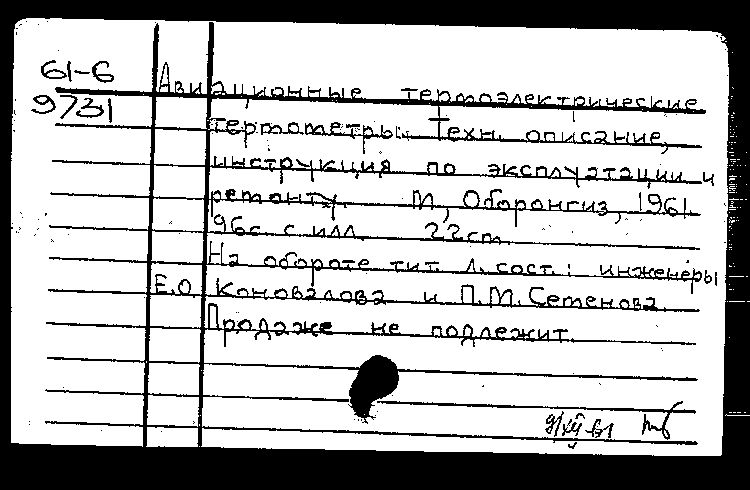 61-6
Авиационные термоэлектрические
9731
термометры. Техн. описание,
инструкция по эксплуатации и
ремонту. М, Оборонгиз, 1961
96с. с илл. 22см.
На обороте тит. л. сост.: инженеры
Е.О. Коновалова и П.М. Семенова.
Продаже не подлежит.